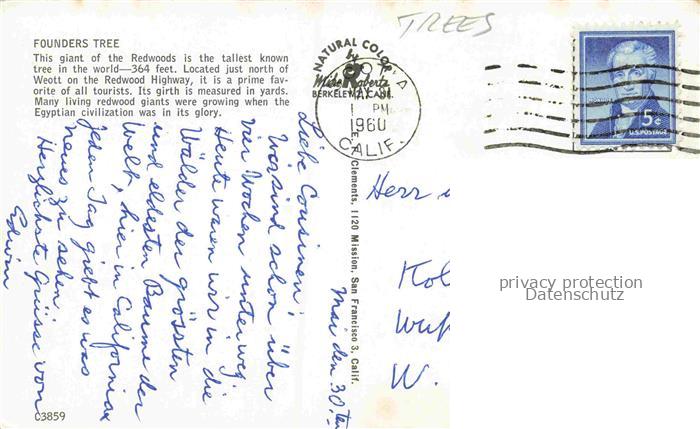 TREES
FOUNDERS TREE
This giant of the Redwoods is the tallest known
tree in the world—364 feet. Located just north of
Weott on the Redwood Highway, it is a prime fav-
orite of all tourists. Its girth is measured in yards.
Many living redwood giants were growing when the
Egyptian civilization was in its glory.
NATURAL COLOR
Mike Roberts
BERKELEY 2, CALIF.
PM
1960
CALIF.
5¢
U.S. POSTAGE
Clements, 1120 Mission, San Francisco 3, Calif.
Mai den 30ten
Liebe Cousinen;
Wir sind schon über
vier Wochen unterweg;
Heute waren wir in die
Wälder der grössten
und eldesten Bäume der
Welt, hier in California
Jeden Tag giebt es was
neues zu sehen.
Herzlichste Grüsse von
Edwin
Herr
Kol
Wup
W.
privacy protection
Datenschutz
C3859